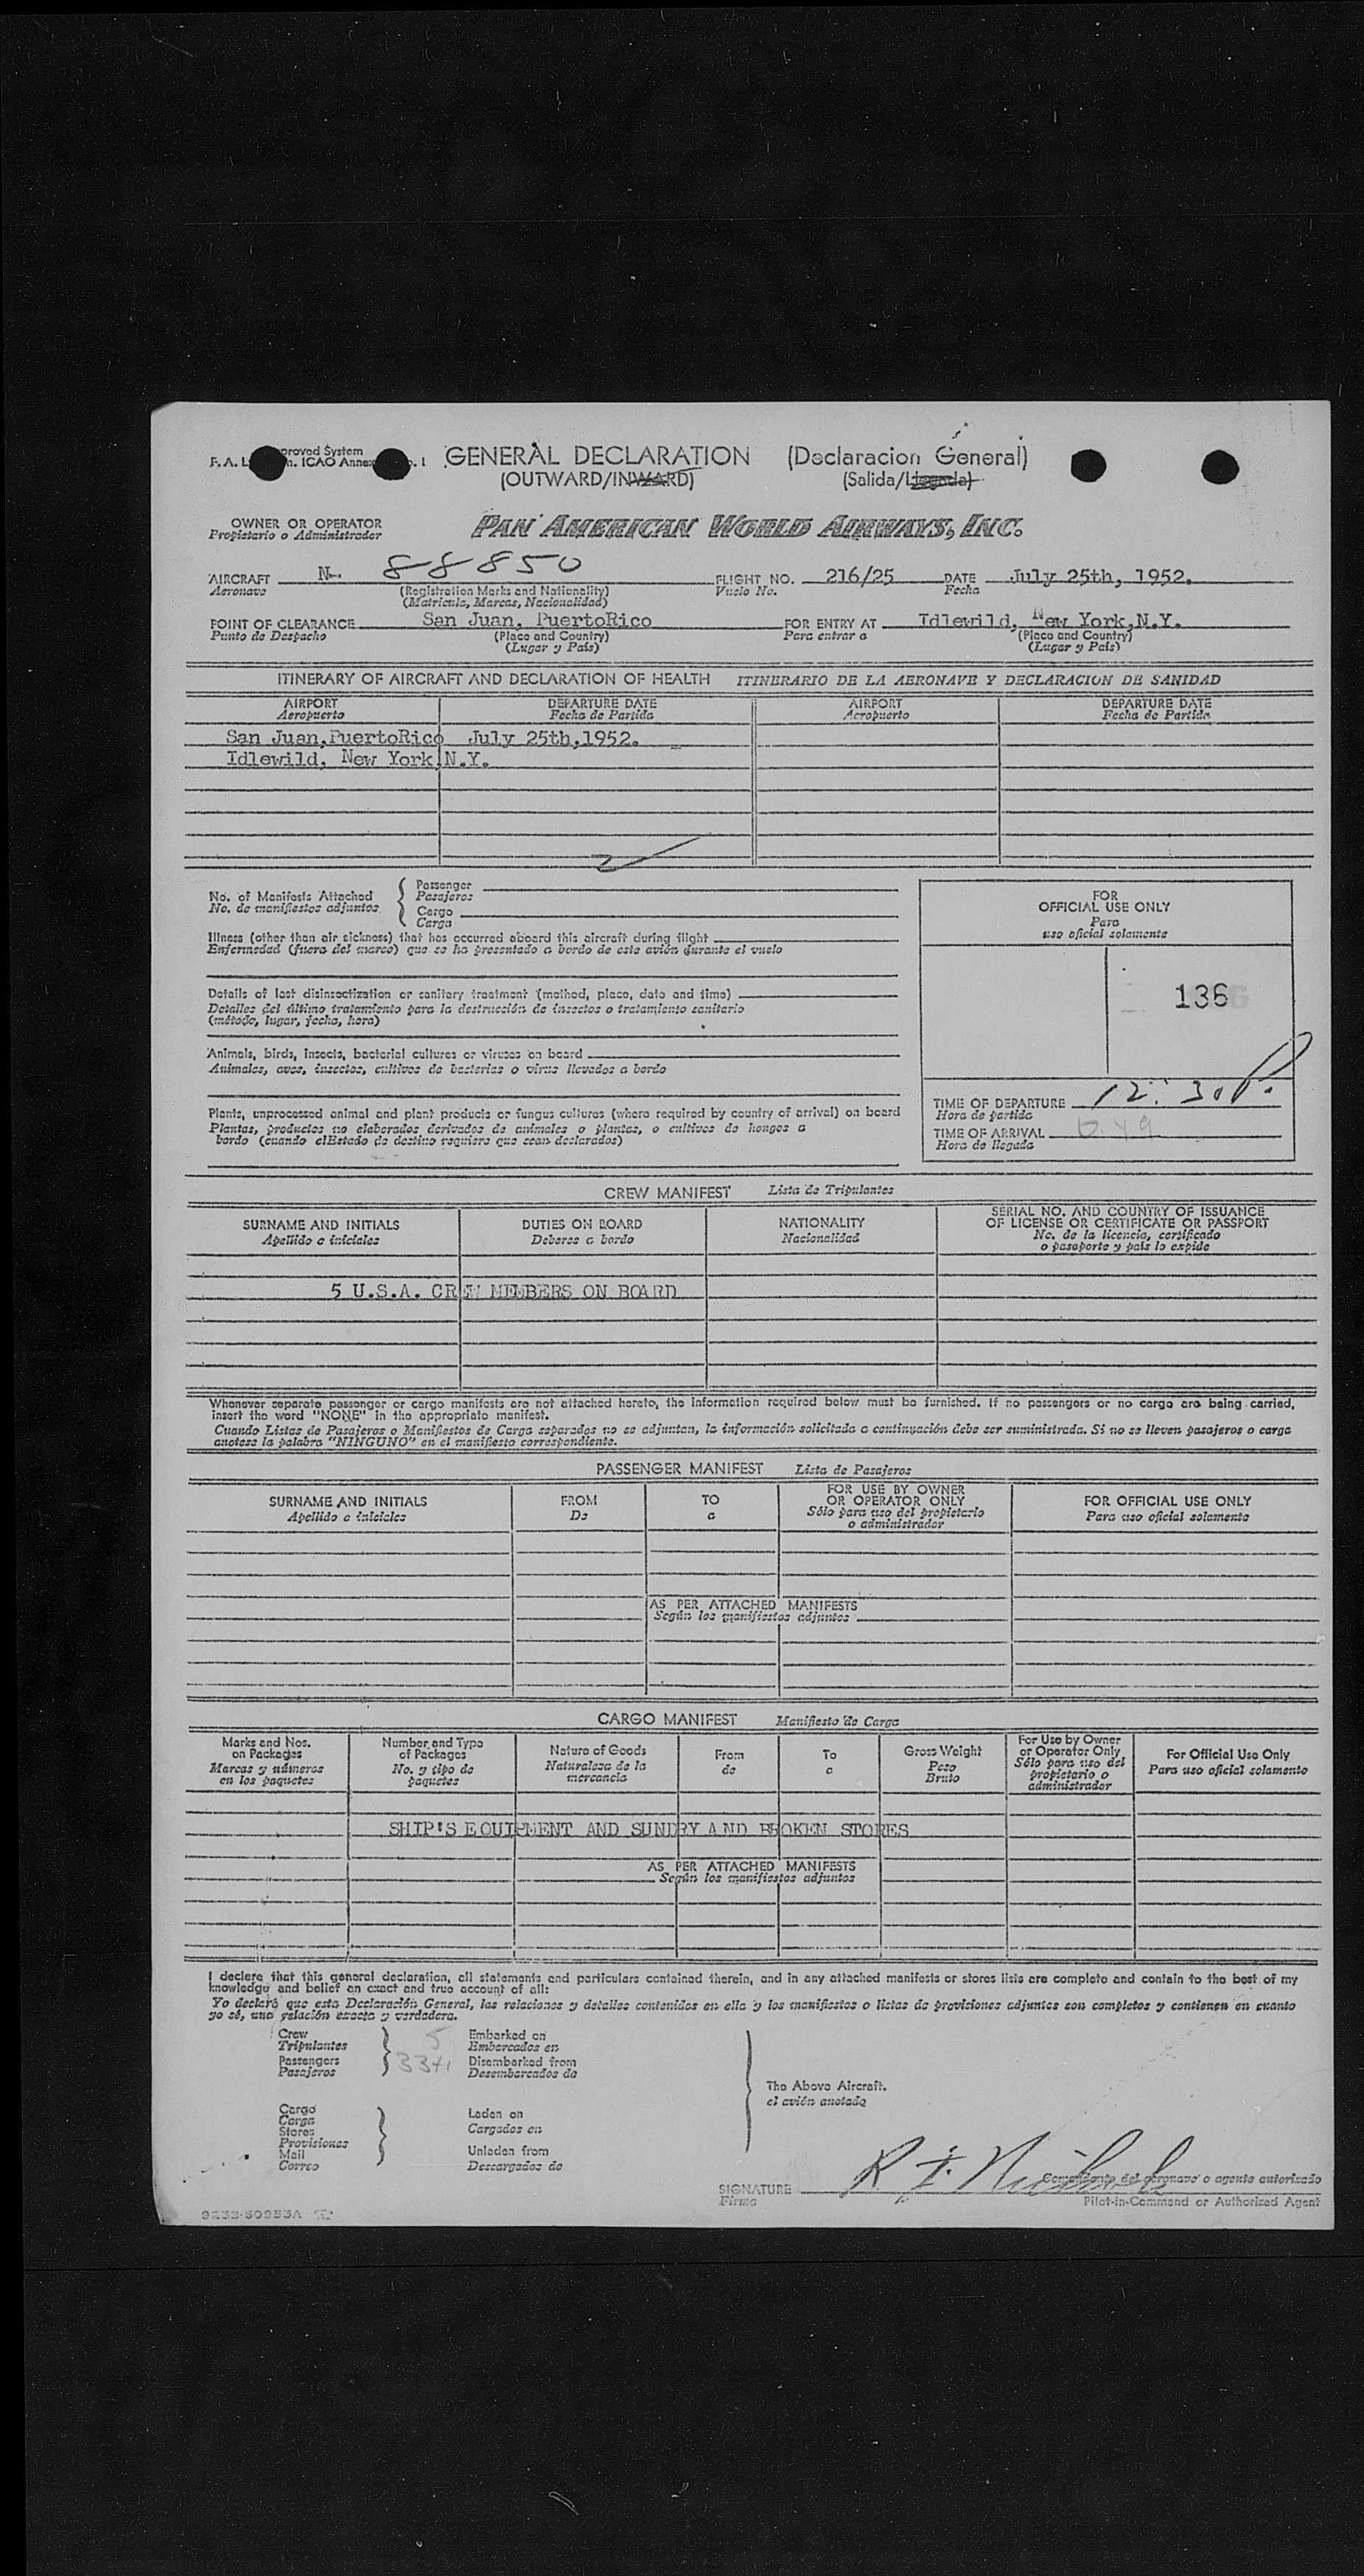 proved System
GENERAL DECLARATION (Declaracion General)
F. A. L. n. ICAO Annex o. 1
(OUTWARD/INWARD) (Salida/Llegada)
OWNER OR OPERATOR PAN AMERICAN WORLD AIRWAYS, INC.
Propietario o Administrador
AIRCRAFT N- 88850 FLIGHT NO. 216/25 DATE July 25th, 1952.
Aeronave (Registration Marks and Nationality) Vuelo No. Fecha
(Matricula, Marcas, Nacionalidad)
POINT OF CLEARANCE San Juan, PuertoRico FOR ENTRY AT Idlewild, New York,N.Y.
Punto de Despacho (Place and Country) Para entrar a (Place and Country)
(Lugar y País) (Lugar y País)
ITINERARY OF AIRCRAFT AND DECLARATION OF HEALTH ITINERARIO DE LA AERONAVE Y DECLARACION DE SANIDAD
AIRPORT DEPARTURE DATE AIRPORT DEPARTURE DATE
Aeropuerto Fecha de Partida Aeropuerto Fecha de Partida
San Juan,PuertoRico July 25th,1952.
Idlewild, New York,N.Y.
No. of Manifests Attached
No. de manifiestos adjuntos
Passenger
Pasajeros
Cargo
Carga
Illness (other than air sickness) that has occurred aboard this aircraft during flight
Enfermedad (fuera del mareo) que se ha presentado a bordo de este avión durante el vuelo
Details of last disinsectization or sanitary treatment (method, place, date and time)
Detalles del último tratamiento para la destrucción de insectos o tratamiento sanitario
(método, lugar, fecha, hora)
Animals, birds, insects, bacterial cultures or viruses on board
Animales, aves, insectos, cultivos de bacterias o virus llevados a bordo
Plants, unprocessed animal and plant products or fungus cultures (where required by country of arrival) on board
Plantas, productos no elaborados derivados de animales o plantas, o cultivos de hongos a
bordo (cuando elEstado de destino requiere que sean declarados)
FOR
OFFICIAL USE ONLY
Para
uso oficial solamente
136
TIME OF DEPARTURE 12:30P.
Hora de partida
TIME OF ARRIVAL
Hora de llegada
CREW MANIFEST Lista de Tripulantes
SURNAME AND INITIALS DUTIES ON BOARD NATIONALITY SERIAL NO. AND COUNTRY OF ISSUANCE
OF LICENSE OR CERTIFICATE OR PASSPORT
Apellido e iniciales Deberes a bordo Nacionalidad No. de la licencia, certificado
o pasaporte y país lo expide
5 U.S.A. CREW MEMBERS ON BOARD
Whenever separate passenger or cargo manifests are not attached hereto, the information required below must be furnished. If no passengers or no cargo are being carried,
insert the word "NONE" in the appropriate manifest.
Cuando Listas de Pasajeros o Manifiestos de Carga separados no se adjuntan, la información solicitada a continuación debe ser suministrada. Si no se lleven pasajeros o carga
anotese la palabra "NINGUNO" en el manifiesto correspondiente.
PASSENGER MANIFEST Lista de Pasajeros
SURNAME AND INITIALS FROM TO FOR USE BY OWNER
OR OPERATOR ONLY FOR OFFICIAL USE ONLY
Apellido e iniciales De a Sólo para uso del propietario
o administrador Para uso oficial solamente
AS PER ATTACHED MANIFESTS
Según los manifiestos adjuntos
CARGO MANIFEST Manifiesto de Carga
Marks and Nos.
on Packages
Marcas y números
en los paquetes
Number and Type
of Packages
No. y tipo de
paquetes
Nature of Goods
Naturaleza de la
mercancía
From
de
To
a
Gross Weight
Peso
Bruto
For Use by Owner
or Operator Only
Sólo para uso del
propietario o
administrador
For Official Use Only
Para uso oficial solamente
SHIP'S EQUIPMENT AND SUNDRY AND BROKEN STORES
AS PER ATTACHED MANIFESTS
Según los manifiestos adjuntos
I declare that this general declaration, all statements and particulars contained therein, and in any attached manifests or stores lists are complete and contain to the best of my
knowledge and belief an exact and true account of all:
Yo declaró que esta Declaración General, las relaciones y detalles contenidos en ella y los manifiestos o listas de proviciones adjuntos son completos y contienen en cuanto
yo sé, una relación exacta y verdadera.
Crew
Tripulantes
Passengers
Pasajeros
5
33+1
Embarked on
Embarcados en
Disembarked from
Desembarcados de
The Above Aircraft.
el avión anotado
Cargo
Carga
Stores
Provisiones
Mail
Correo
Laden on
Cargados en
Unladen from
Descargados de
SIGNATURE
Firma
Comandante del aeronave o agente autorizado
Pilot-in-Command or Authorized Agent